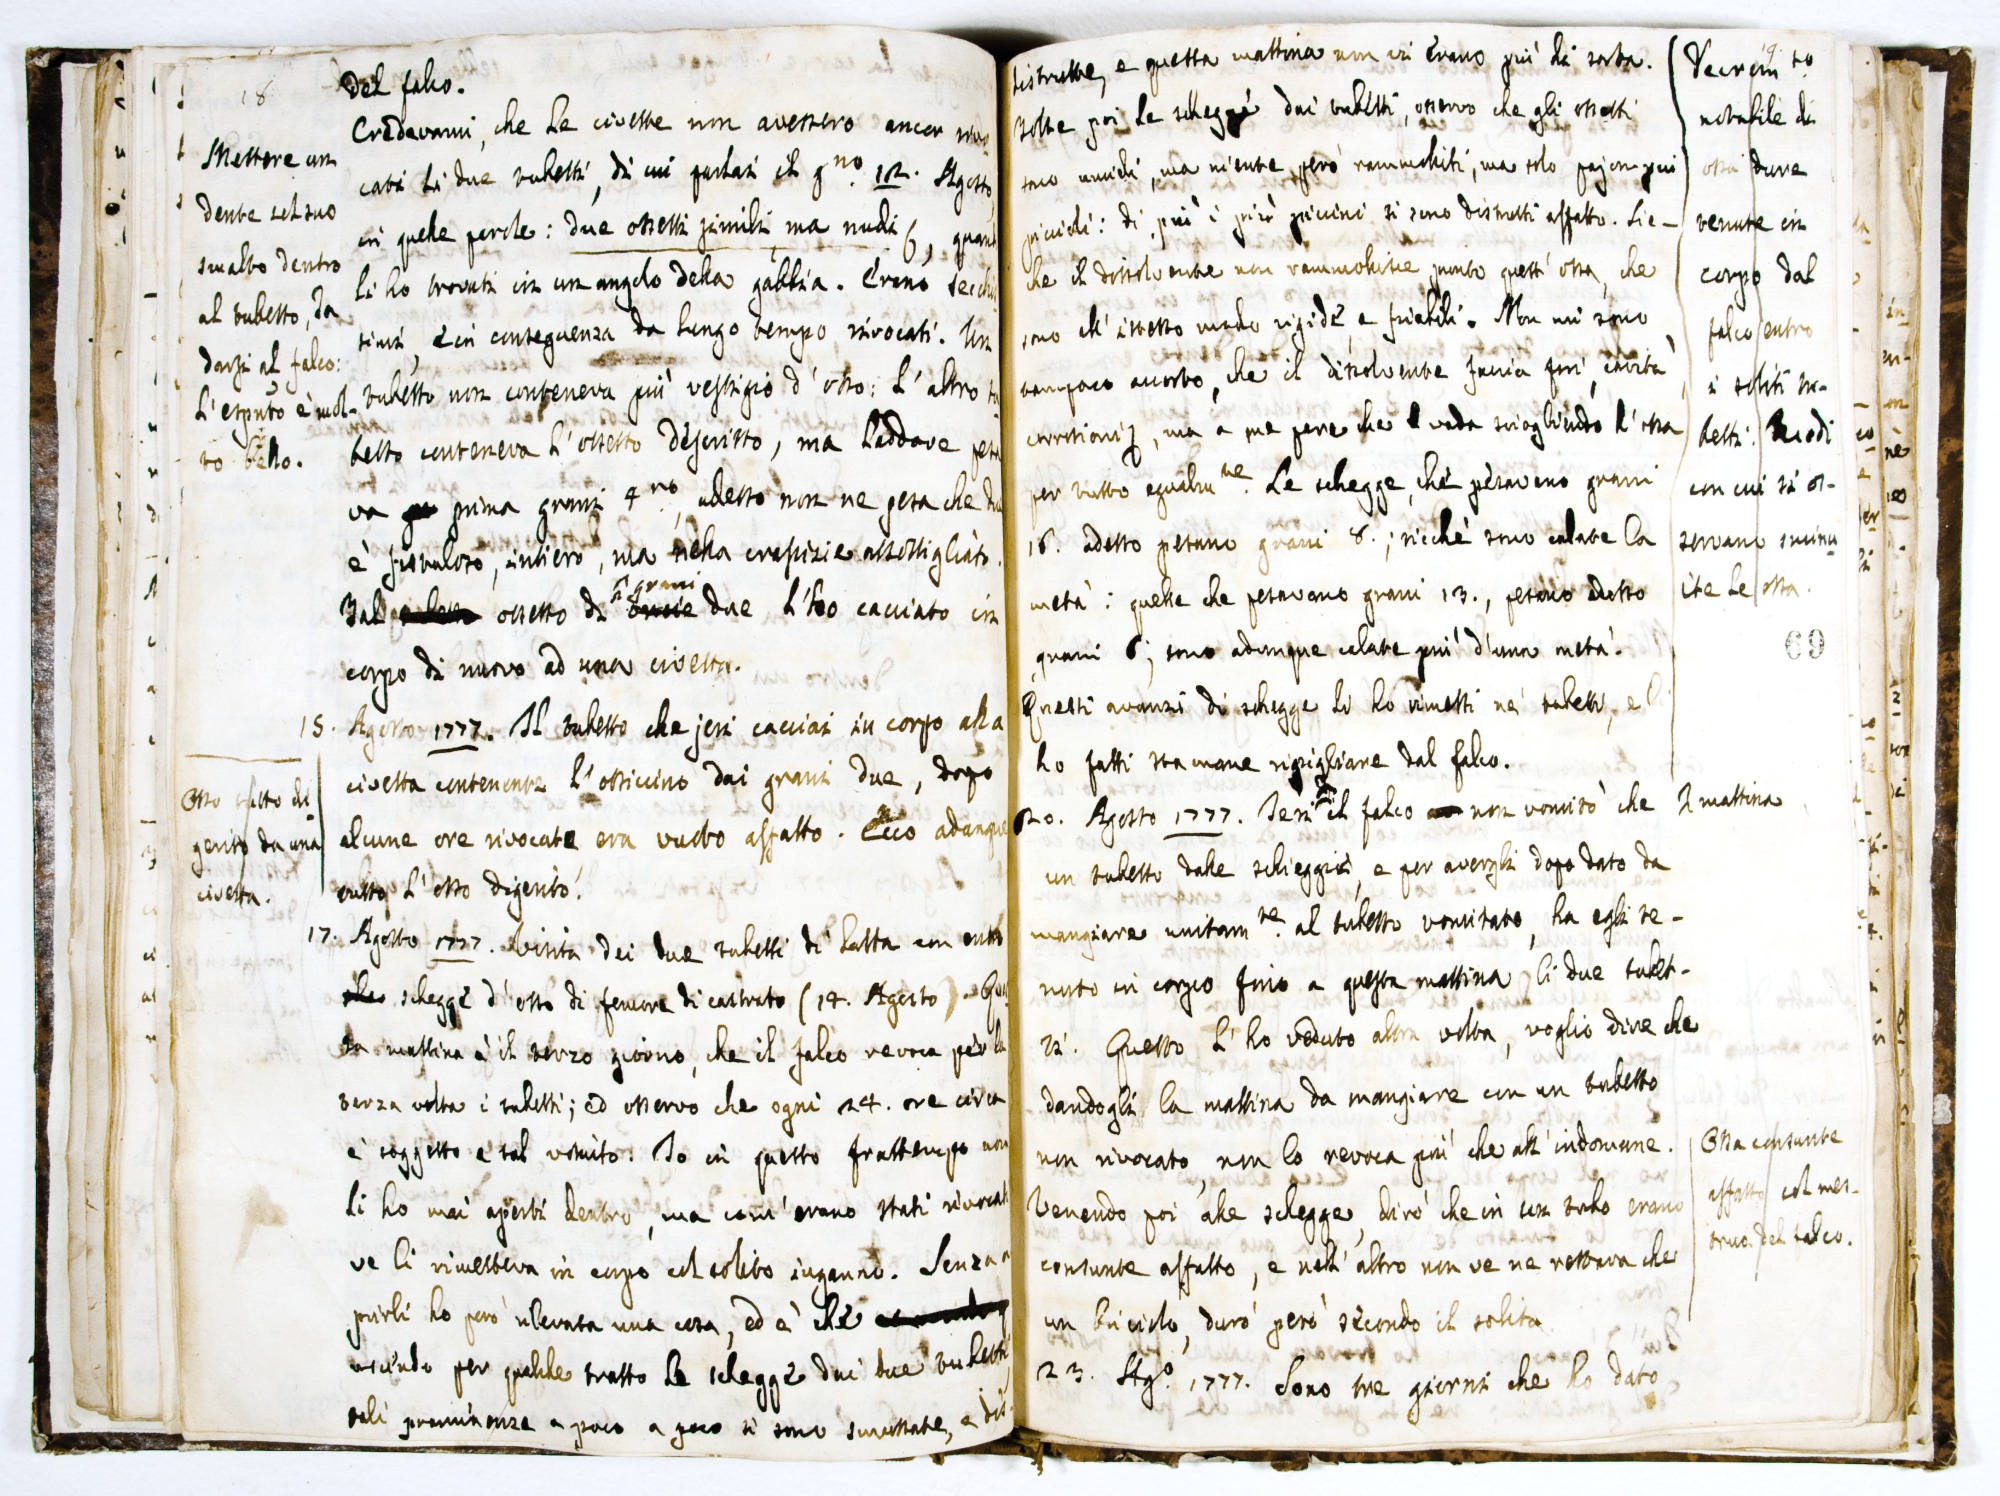 18
del falco.
Credevami, che le civette non avessero ancor rivo
cati li due tubetti, di cui parlai il gno. 12. Agosto,
in quelle parole: due ossetti simili, ma nudi &c, quando
li ho trovati in un angolo della gabbia. Erano secchis
simi, e in conseguenza da lungo tempo rivocati. Un
tubetto non conteneva più vestigio d'osso: l'altro tu
betto conteneva l'ossetto descritto, ma laddove pesa
va prima grani 4, adesso non ne pesa che due
è fistuloso, intiero, ma nella crassizie assottigliato.
Tal ossetto di grani due l'ho cacciato in
corpo di nuovo ad una civetta.
Mettere un
dente col suo
smalto dentro
al tubetto, da
darsi al falco:
L' è mol-
to bello.
15. Agosto 1777. Il tubetto che jeri cacciai in corpo alla
civetta contenente l'ossiccino dai grani due, dopo
alcune ore rivocato era vuoto affatto. Ecco adunque
tutto l'osso digerito.
Osso tutto di
gerito da una
civetta.
17. Agosto 1777. Visita dei due tubetti di latta con entro
schegge d'osso di femore di castrato (14. Agosto). Ques
ta mattina è il terzo giorno, che il falco revoca per la
terza volta i tubetti; ed osservo che ogni 24. ore circa
è soggetto a tal vomito. Io in questo frattempo non
li ho mai aperti dentro, ma com'erano stati rivocati
ve li rimetteva in corpo col solito inganno. Senza a
prirli ho però rilevata una cosa, ed è che
uscendo per qualche tratto le schegge dai due tubetti,
tali prominenze a poco a poco si sono smussate, e dis-
distrutte, e questa mattina non vi erano più di sorta.
Tolte poi le schegge dai tubetti, osservo che gli ossetti
sono umidi, ma niente però rammolliti, ma solo pajon più
piccioli: di più i più piccini si sono distrutti affatto. Sic-
che il dissolvente non rammollisce punto quest'ossa, che
sono all'istesso modo rigide, e friabili. Non mi sono
tampoco accorto, che il dissolvente faccia fori, cavità,
corrosioni &, ma a me pare che vada sciogliendo l'ossa
per tutto egualmte. Le schegge, che pesavano grani
16. adesso pesano grani 8.; sicchè sono calate la
metà: quelle che pesavano grani 13., pesano adesso
grani 6; sono adunque calate più d'una metà.
Questi avanzi di schegge li ho rimessi ne' tubetti, e li
ho fatti stamane ripigliare dal falco.
notabile di
ossa dure
tenute in
corpo dal
falco entro
i soliti tu-
betti. Modi
con cui si os-
servano sminu
ite le ossa.
69
20. Agosto 1777. Jeri mattina il falco non vomitò che
un tubetto dalle schieggie, e per avergli dopo dato da
mangiare unitamte. al tubetto vomitato, ha egli te-
nuto in corpo fino a questa mattina li due tubet-
ti. Questo l'ho veduto altra volta, voglio dire che
dandogli la mattina da mangiare con un tubetto
non rivocato, non lo revoca più che all'indomane.
Venendo poi alle schegge, dirò che in un tubo erano
consunte affatto, e nell'altro non ve ne restava che
un briciolo, duro però secondo il solito
Ossa consunte
affatto col mes-
truo del falco.
23. Ago. 1777. Sono tre giorni che ho dato